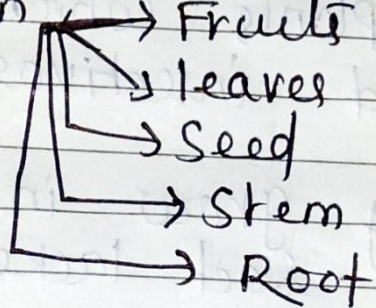 Fruits
leaves
Seed
Stem
Root